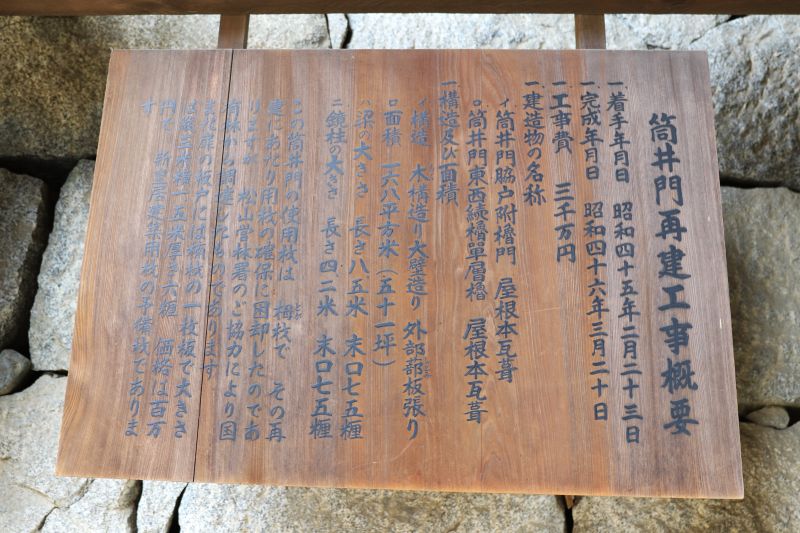 筒井門再建工事概要
一着手年月日 昭和四十五年二月二十三日
一完成年月日 昭和四十六年三月二十日
一工事費 三千万円
一建造物の名称
イ筒井門脇戸附櫓門 屋根本瓦葺
ロ筒井門東西続櫓單層櫓 屋根本瓦葺
一構造及び面積
イ構造 木構造り大壁造り 外部蔀板張り
ロ面積 一六八平方米(五十一坪)
ハ梁の大きさ 長さ八五米 末口七五糎
ニ鏡柱の大きさ 長さ四二米 末口七五糎
この筒井門の使用栈は 栂栈で その再
建にあたり用栈の確保に困却したのであ
りますが 松山営林署のご協力により国
有林から調達したものであります
また扉の板戸には楠栈の一枚板で大きさ
は縦三米横一五米厚さ六糎 価格は百万
円で 新皇居建築用栈の予備栈でありま
す